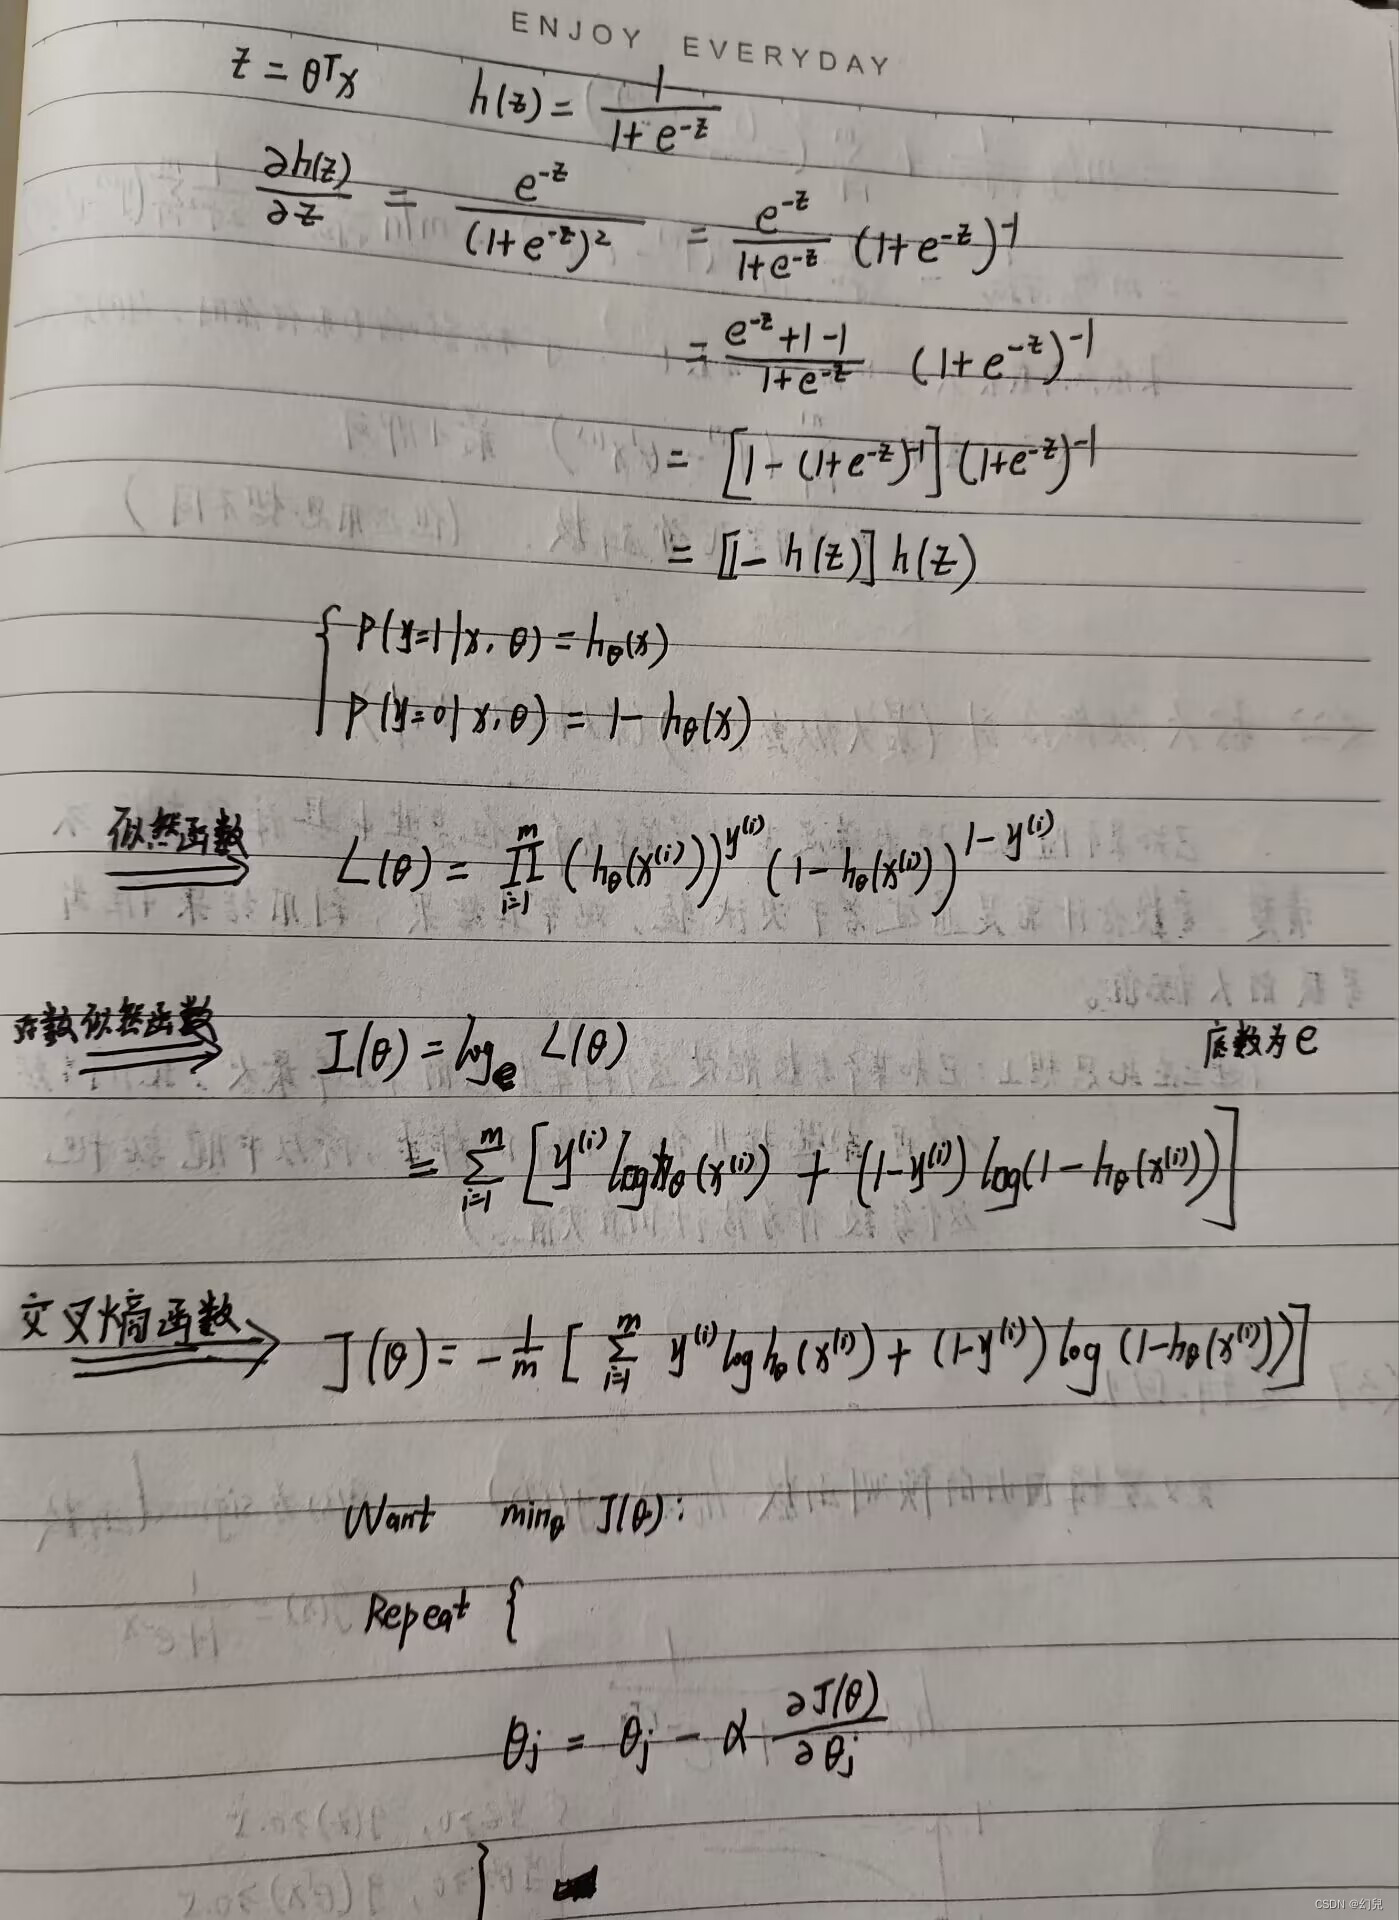 ENJOY EVERYDAY
z = θᵀx h(z) = 1/(1+e^{-z})
∂h(z)/∂z = e^{-z}/(1+e^{-z})² = e^{-z}/(1+e^{-z}) (1+e^{-z})^{-1}
= (e^{-z}+1-1)/(1+e^{-z}) (1+e^{-z})^{-1}
= [1-(1+e^{-z})^{-1}](1+e^{-z})^{-1}
= [1-h(z)]h(z)
{ P(y=1|x,θ) = h_θ(x)
P(y=0|x,θ) = 1-h_θ(x)
似然函数 ⇒ L(θ) = ∏_{i=1}^{m} (h_θ(x^{(i)}))^{y^{(i)}} (1-h_θ(x^{(i)}))^{1-y^{(i)}}
对数似然函数 ⇒ I(θ) = log_e L(θ) 底数为e
= ∑_{i=1}^{m} [y^{(i)} log h_θ(x^{(i)}) + (1-y^{(i)}) log(1-h_θ(x^{(i)}))]
交叉熵函数 ⇒ J(θ) = -1/m [∑_{i=1}^{m} y^{(i)} log h_θ(x^{(i)}) + (1-y^{(i)}) log(1-h_θ(x^{(i)}))]
Want min_θ J(θ):
Repeat {
θ_j = θ_j - α ∂J(θ)/∂θ_j
}
CSDN @幻兒